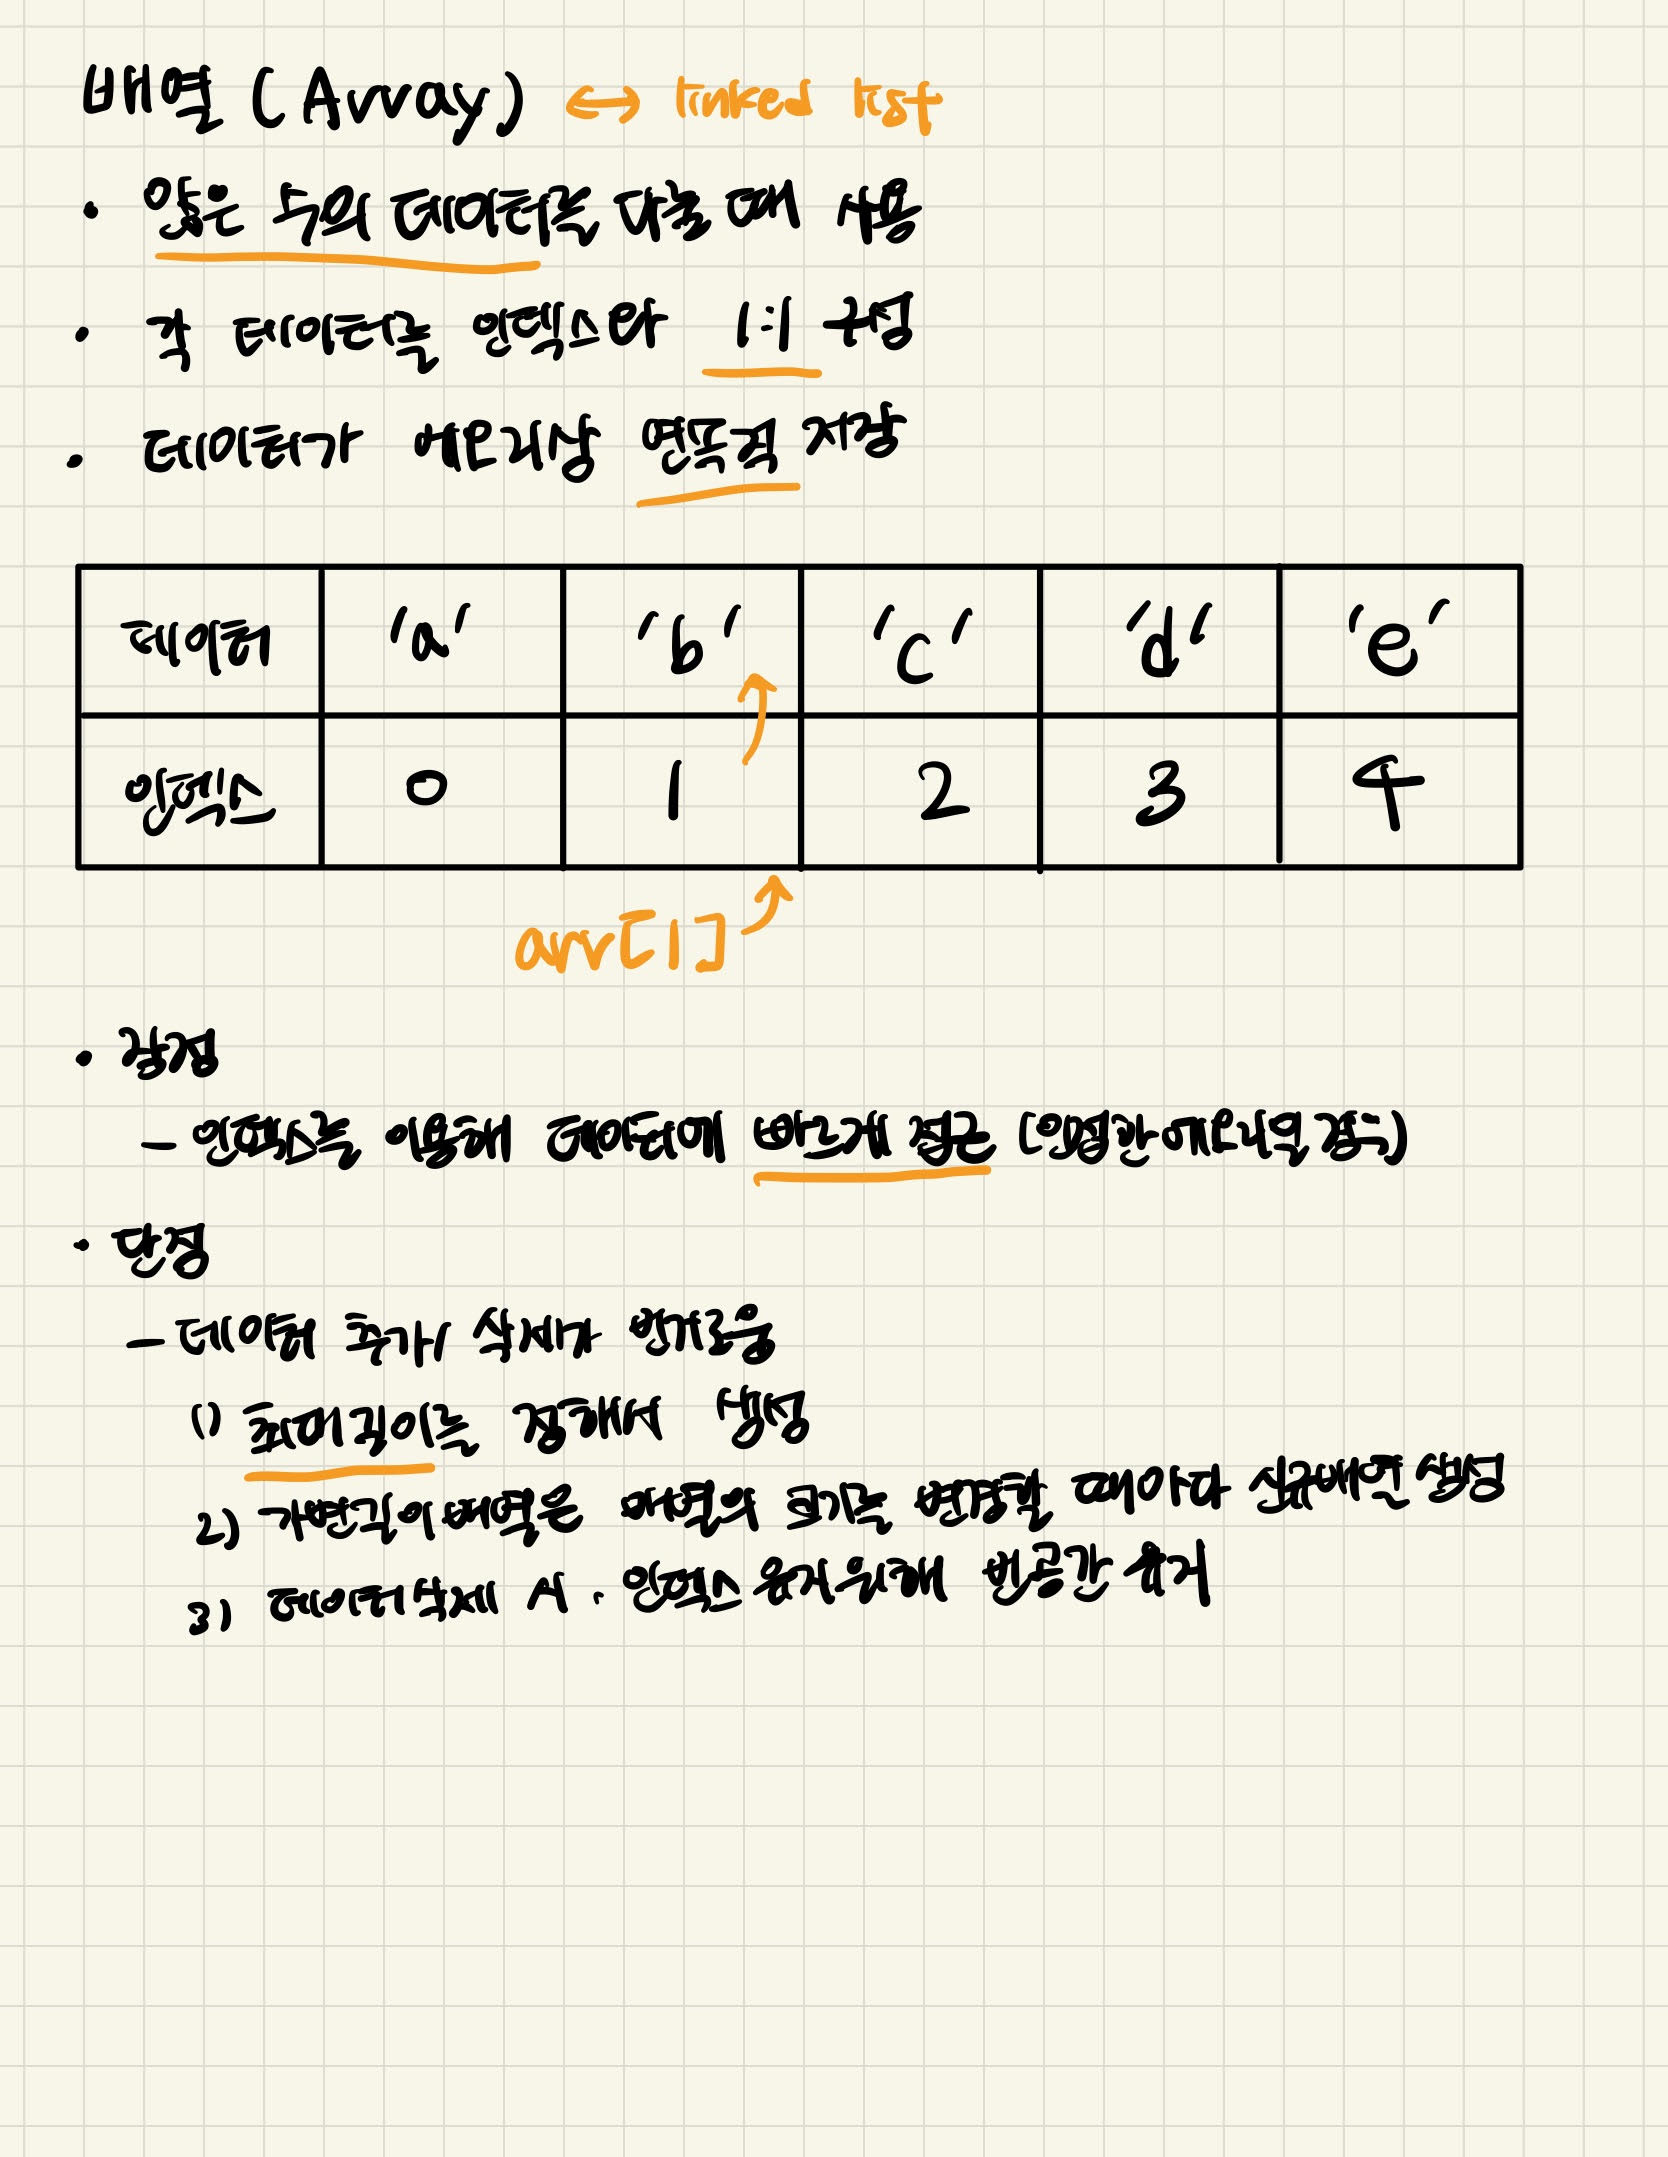 배열 (Array) ↔ linked list
· 많은 수의 데이터를 다룰 때 사용
· 각 데이터를 인덱스와 1:1 구성
· 데이터가 메모리상 연속적 저장
데이터 'a' 'b' 'c' 'd' 'e'
인덱스 0 1 2 3 4
arr[1]
· 장점
- 인덱스를 이용해 데이터에 빠르게 접근 (인접한 메모리일 경우)
· 단점
- 데이터 추가/ 삭제가 번거로움
1) 최대길이를 정해서 생성
2) 가변길이배열은 배열의 크기를 변경할 때마다 신규배열 생성
3) 데이터삭제 시, 인덱스 유지 위해 빈공간 유지